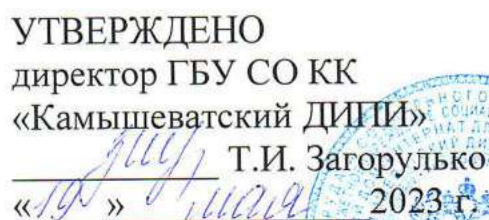 УТВЕРЖДЕНО
директор ГБУ СО КК
«Камышеватский ДИПИ»
Т.И. Загорулько
«19» мая 2023 г.